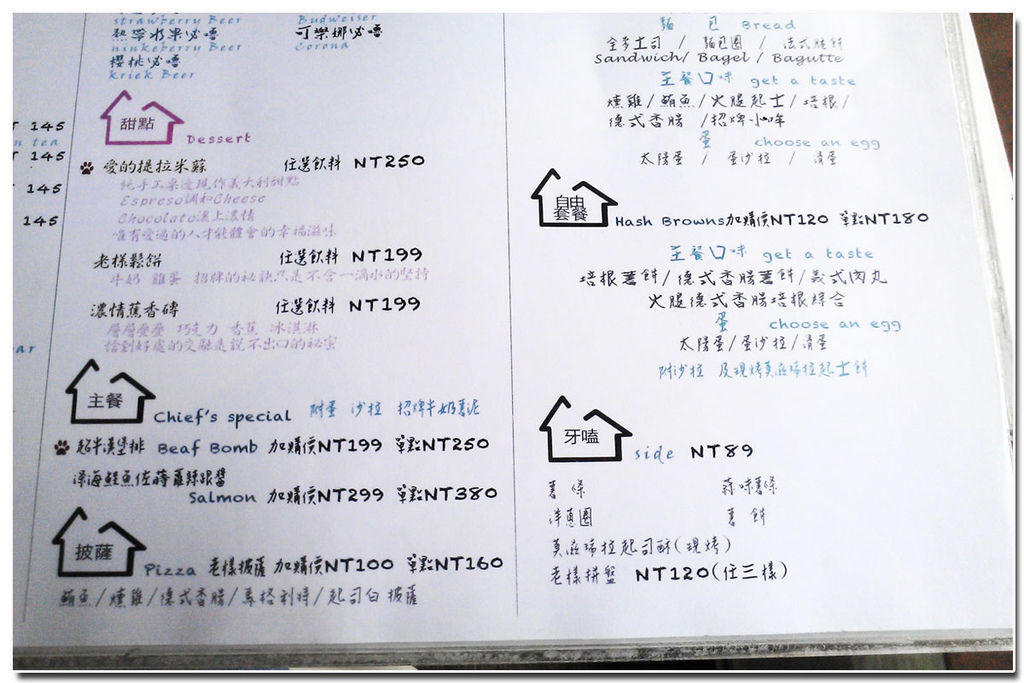 strawberry Beer
Budweiser
熱帶水果必嚕
可樂娜必嚕
ninkeberry Beer
Corona
櫻桃必嚕
Kriek Beer
145
145
145
145
甜點
Dessert
愛的提拉米蘇 任選飲料 NT250
純手工桌邊現作義大利甜點
Espreso調和Cheese
Chocolato淋上濃情
唯有愛過的人才能體會的幸福滋味
老樣鬆餅 任選飲料 NT199
牛奶 雞蛋 招牌的祕訣只是不含一滴水的堅持
濃情蕉香磚 任選飲料 NT199
層層疊疊 巧克力 香蕉 冰淇淋
恰到好處的交融是說不出口的祕蜜
主餐
Chief's special 附蛋 沙拉 招牌牛奶薯泥
起半漢堡排 Beaf Bomb 加購價NT199 單點NT250
深海鮭魚佐蒔蘿酸醬
Salmon 加購價NT299 單點NT380
披薩
Pizza 老樣披薩 加購價NT100 單點NT160
鮪魚/燻雞/德式香腸/瑪格利特/起司白披薩
麵 包 Bread
全麥土司 / 貝包圈 / 法式脆餅
Sandwich/ Bagel / Bagutte
主餐口味 get a taste
燻雞/鮪魚/火腿起士/培根/
德式香腸 /招牌小哞
蛋 choose an egg
太陽蛋 / 蛋沙拉 / 滑蛋
自由套餐
Hash Browns加購價NT120 單點NT180
主餐口味 get a taste
培根薯餅/德式香腸薯餅/義式肉丸
火腿德式香腸培根綜合
蛋 choose an egg
太陽蛋/蛋沙拉/滑蛋
附沙拉 及現烤莫茲瑞拉起士餅
牙嗑
side NT89
薯條 蒜味薯條
洋蔥圈 薯餅
莫茲瑞拉起司酥(現烤)
老樣拼盤 NT120(任三樣)